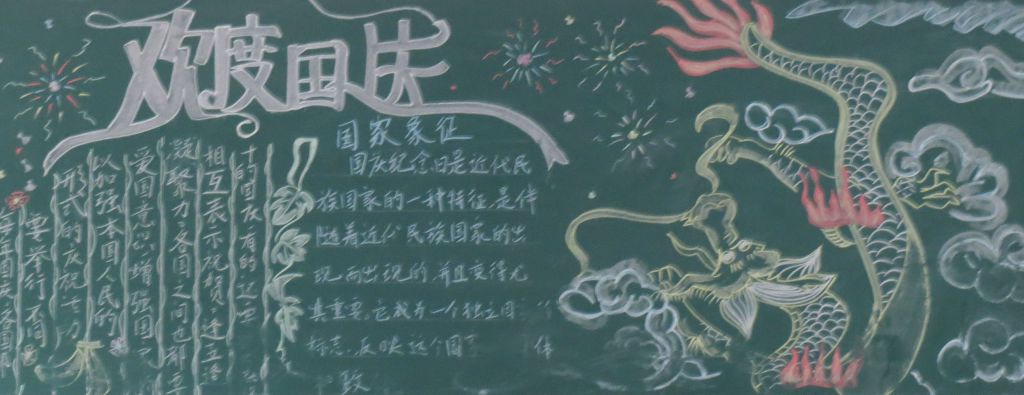 欢度国庆
国家象征
国庆纪念日是近代民
族国家的一种特征,是伴
随着近代民族国家的出
现而出现的,并且变得尤
其重要。它成为一个独立国
标志,反映这个国
年国庆各国
要举行不同
形式的庆祝活动
以加强本国人民的
爱国意识,增强国
凝聚力。各国之间也都
相互表示祝贺。逢五逢
十的国庆,有的还